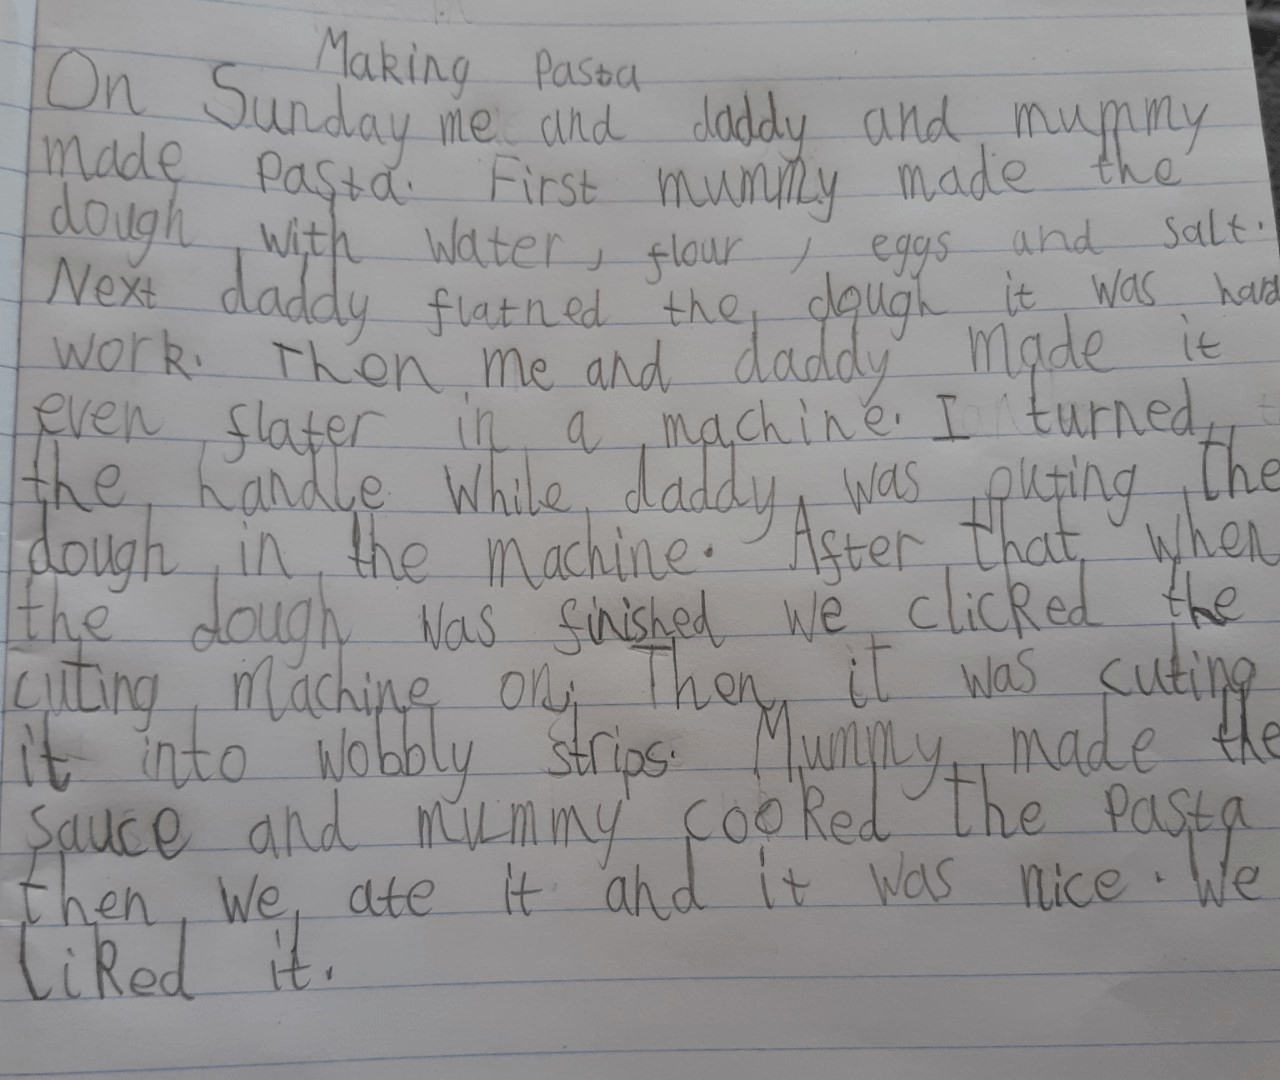 Making Pasta
On Sunday me and daddy and mummy
made pasta. First mummy made the
dough with water, flour, eggs and salt.
Next daddy flatned the dough it was hard
work. Then me and daddy made it
even flater in a machine. I turned
the handle while daddy was puting the
dough in the machine. After that when
the dough was finished we clicked the
cuting machine on. Then it was cuting
it into wobbly strips. Mummy made the
sauce and mummy cooked the pasta
then we ate it and it was nice. We
liked it.